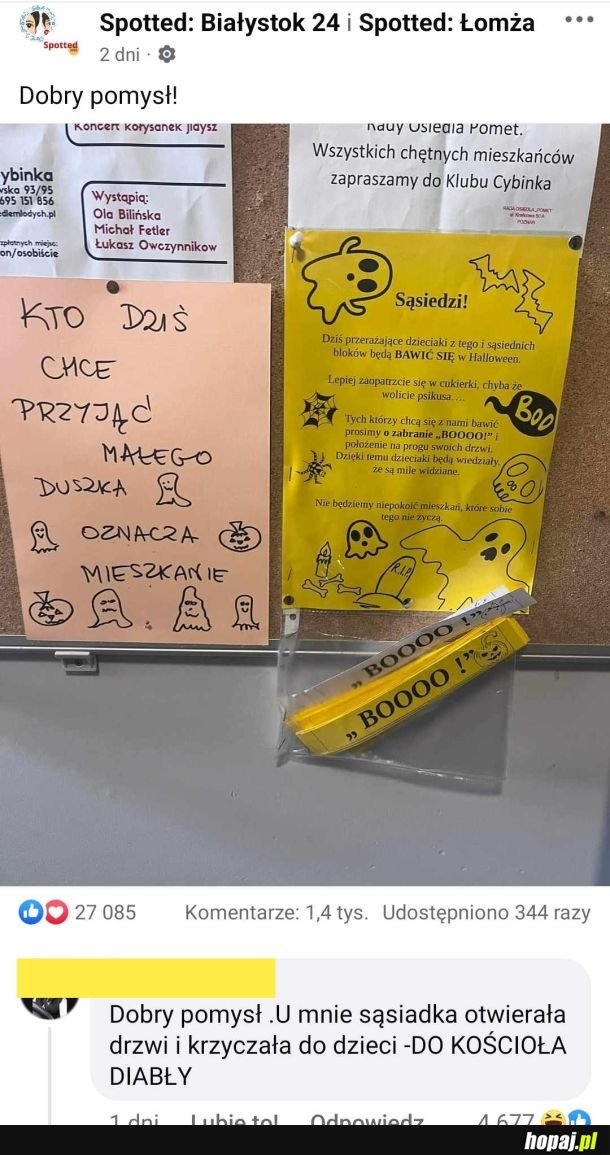 Spotted: Białystok 24 i Spotted: Łomża
Spotted
2 dni
Dobry pomysł!
Koncert kołysanek jidysz
Wystąpią:
Ola Bilińska
Michał Fetler
Łukasz Owczynnikow
ybinka
ska 93/95
695 151 856
dlemlodych.pl
on/osobiście
Rady Osiedla Pomet.
Wszystkich chętnych mieszkańców
zapraszamy do Klubu Cybinka
RADA OSIEDLA „POMET"
POZNAŃ
KTO DZIŚ
CHCE
PRZYJĄĆ
MAŁEGO
DUSZKA
OZNACZA
MIESZKANIE
Sąsiedzi!
Dziś przerażające dzieciaki z tego i sąsiednich
bloków będą BAWIĆ SIĘ w Halloween.
Lepiej zaopatrzcie się w cukierki, chyba że
wolicie psikusa….
Tych którzy chcą się z nami bawić
prosimy o zabranie „BOOOO!" i
położenie na progu swoich drzwi.
Dzięki temu dzieciaki będą wiedziały,
ze są mile widziane.
Nie będziemy niepokoić mieszkań, które sobie
tego nie życzą.
BOO
R.I.P
„BOOOO !"
„BOOOO !"
27 085
Komentarze: 1,4 tys. Udostępniono 344 razy
Dobry pomysł .U mnie sąsiadka otwierała
drzwi i krzyczała do dzieci -DO KOŚCIOŁA
DIABŁY
1 dni Lubię to! Odpowiedz 4 677
hopaj.pl